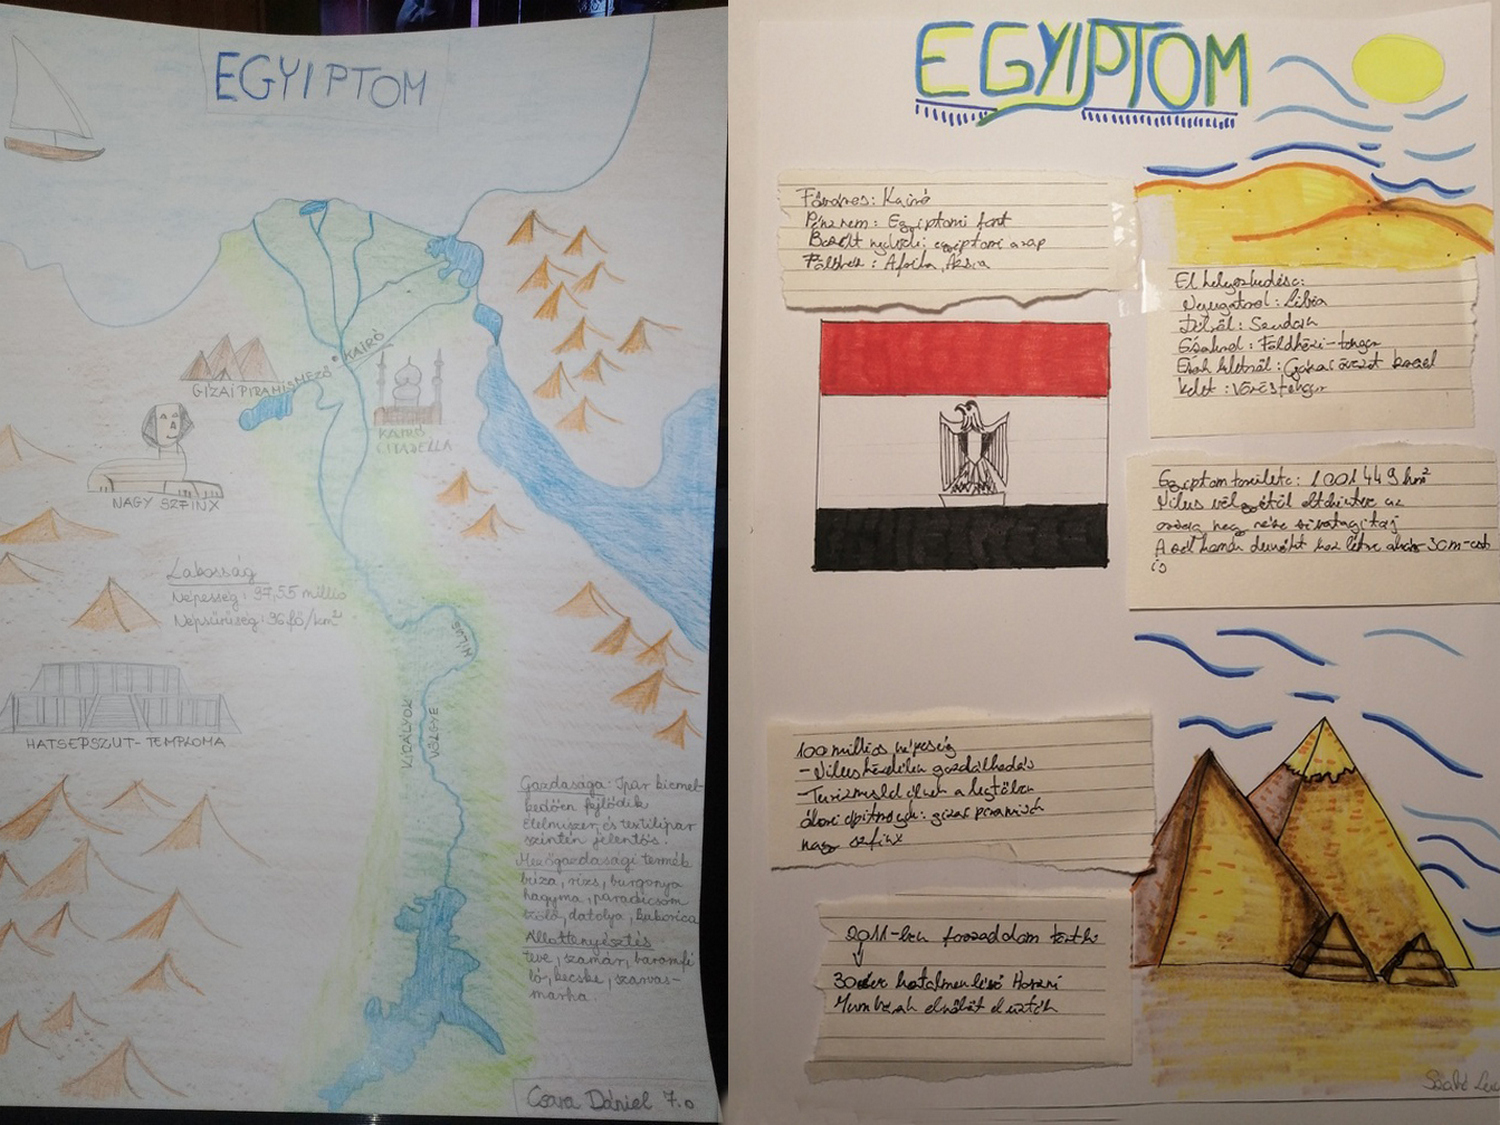 EGYIPTOM
KAIRÓ
GIZAI PIRAMISMEZŐ
KAIRÓ
CITADELLA
NAGY SZFINX
Lakosság
Népesség: 97,55 millió
Népsűrűség: 96 fő/km²
NÍLUS
HATSEPSZUT-TEMPLOMA
KIRÁLYOK
VÖLGYE
Gazdasága: Ipar kiemel-
kedően fejlődik
Élelmiszer és textilipar
szintén jelentős.
Mezőgazdasági termék
búza, rizs, burgonya
hagyma, paradicsom
zöld, datolya, kukorica
Állattenyésztés
teve, szamár, baromfi
ló, kecske, szarvas-
marha.
Csara Dániel 7.o
EGYIPTOM
Főváros: Kairó
Pénznem: Egyiptomi font
Beszélt nyelvek: egyiptomi arab
Földrész: Afrika, Ázsia
Elhelyezkedése:
Nyugatról: Líbia
Délről: Szudán
Északról: Földközi-tenger
Északkeletről: Gázai övezet Izrael
Kelet: Vörös tenger
Egyiptom területe: 1 001 449 km²
Nílus völgyétől eltekintve az
ország nagy része sivatagi táj
A szél homok dunákt hoz létre akár 30m-est
is
100 milliós népesség
- Nílus közelében gazdálkodás
- Turizmusból élnek a legtöbben
ókori építmények: gízai piramisok
nagy szfinx
2011-ben forradalom tört ki
30 éve hatalmon lévő Hoszni
Mubarak elnököt elűzték
Szabó